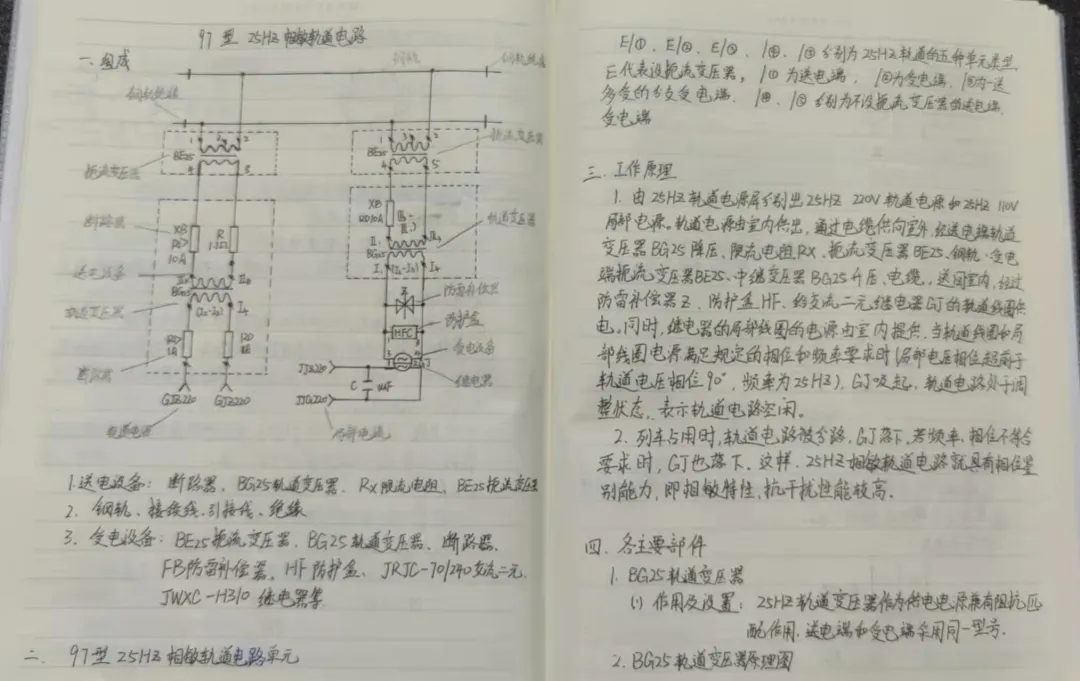 97型 25HZ 相敏轨道电路
一、组成
钢轨绝缘
钢轨
钢轨接续
1 3 2
BE25
4 5
扼流变压器
1 3 2
BE25
4 5
扼流变压器
断路器
XB
RD
10A
R
1.1Ω
XB
RD10A
轨道变压器
送电设备
BG25
轨道变压器
I4
RD
1A
断路器
BG25
I1
I4
Z
防雷补偿器
HFC
防护盒
受电设备
继电器
JJZ220
C
JJF220
GJZ220
GJF220
轨道电源
局部电源
1.送电设备：断路器、BG25轨道变压器、Rx限流电阻、BE25扼流变压器
2. 钢轨、接续线、引接线、绝缘
3. 受电设备：BE25扼流变压器、BG25轨道变压器、断路器、
FB防雷补偿器、HF防护盒、JRJC-70/240交流二元、
JWXC-H310继电器等
二、97型25HZ相敏轨道电路单元
E/①、E/②、E/③、/④、/⑤分别为25HZ轨道的五种单元类型
E代表设扼流变压器，/①为送电端、/②为受电端、/③为一送
多受的分支受电端、/④、/⑤分别为不设扼流变压器的送电端、
受电端
三、工作原理
1. 由25HZ轨道电源屏分别出25HZ 220V轨道电源和25HZ 110V
局部电源。轨道电源由室内供出，通过电缆供向室外，经送电端轨道
变压器BG25降压、限流电阻RX、扼流变压器BE25、钢轨、受电
端扼流变压器BE25、中继变压器BG25升压、电缆，送回室内，经过
防雷补偿器Z、防护盒HF、给交流二元继电器GJ的轨道线圈供
电。同时，继电器的局部线圈的电源由室内提供。当轨道线圈和局
部线圈电源满足规定的相位和频率要求时（局部电压相位超前于
轨道电压相位90°，频率为25HZ），GJ吸起，轨道电路处于调
整状态，表示轨道电路空闲。
2. 列车占用时，轨道电路被分路，GJ落下，若频率、相位不符合
要求时，GJ也落下。这样，25HZ相敏轨道电路就具有相位鉴
别能力，即相敏特性，抗干扰性能较高。
四、各主要部件
1. BG25轨道变压器
(1) 作用及设置：25HZ轨道变压器作为供电电源兼有阻抗匹
配作用.送电端和受电端采用同一型号.
2. BG25轨道变压器原理图